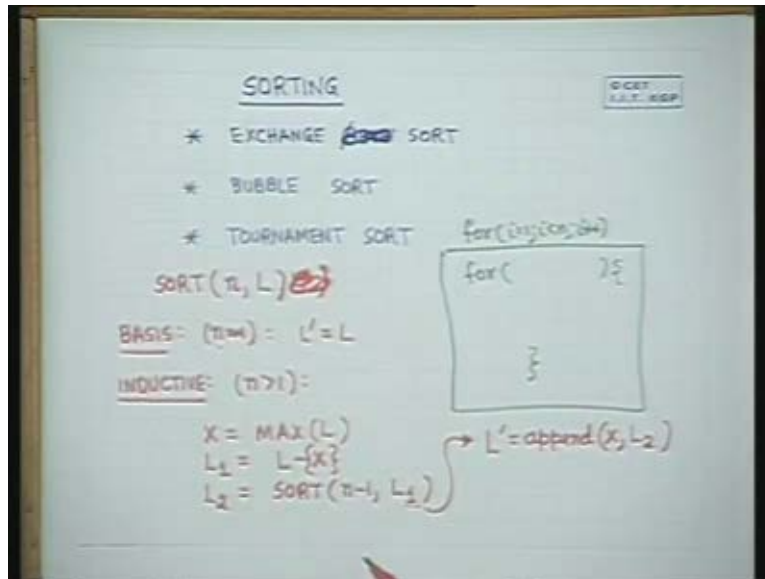 SORTING
© CET
I.I.T. KGP
* EXCHANGE SORT
* BUBBLE SORT
* TOURNAMENT SORT
SORT(n, L)
BASIS: (n=1): L'=L
INDUCTIVE: (n>1):
X = MAX(L)
L1 = L-{X}
L2 = SORT(n-1, L1)
for(i=1;i<n;i++)
for( ){
}
L'=append(X,L2)